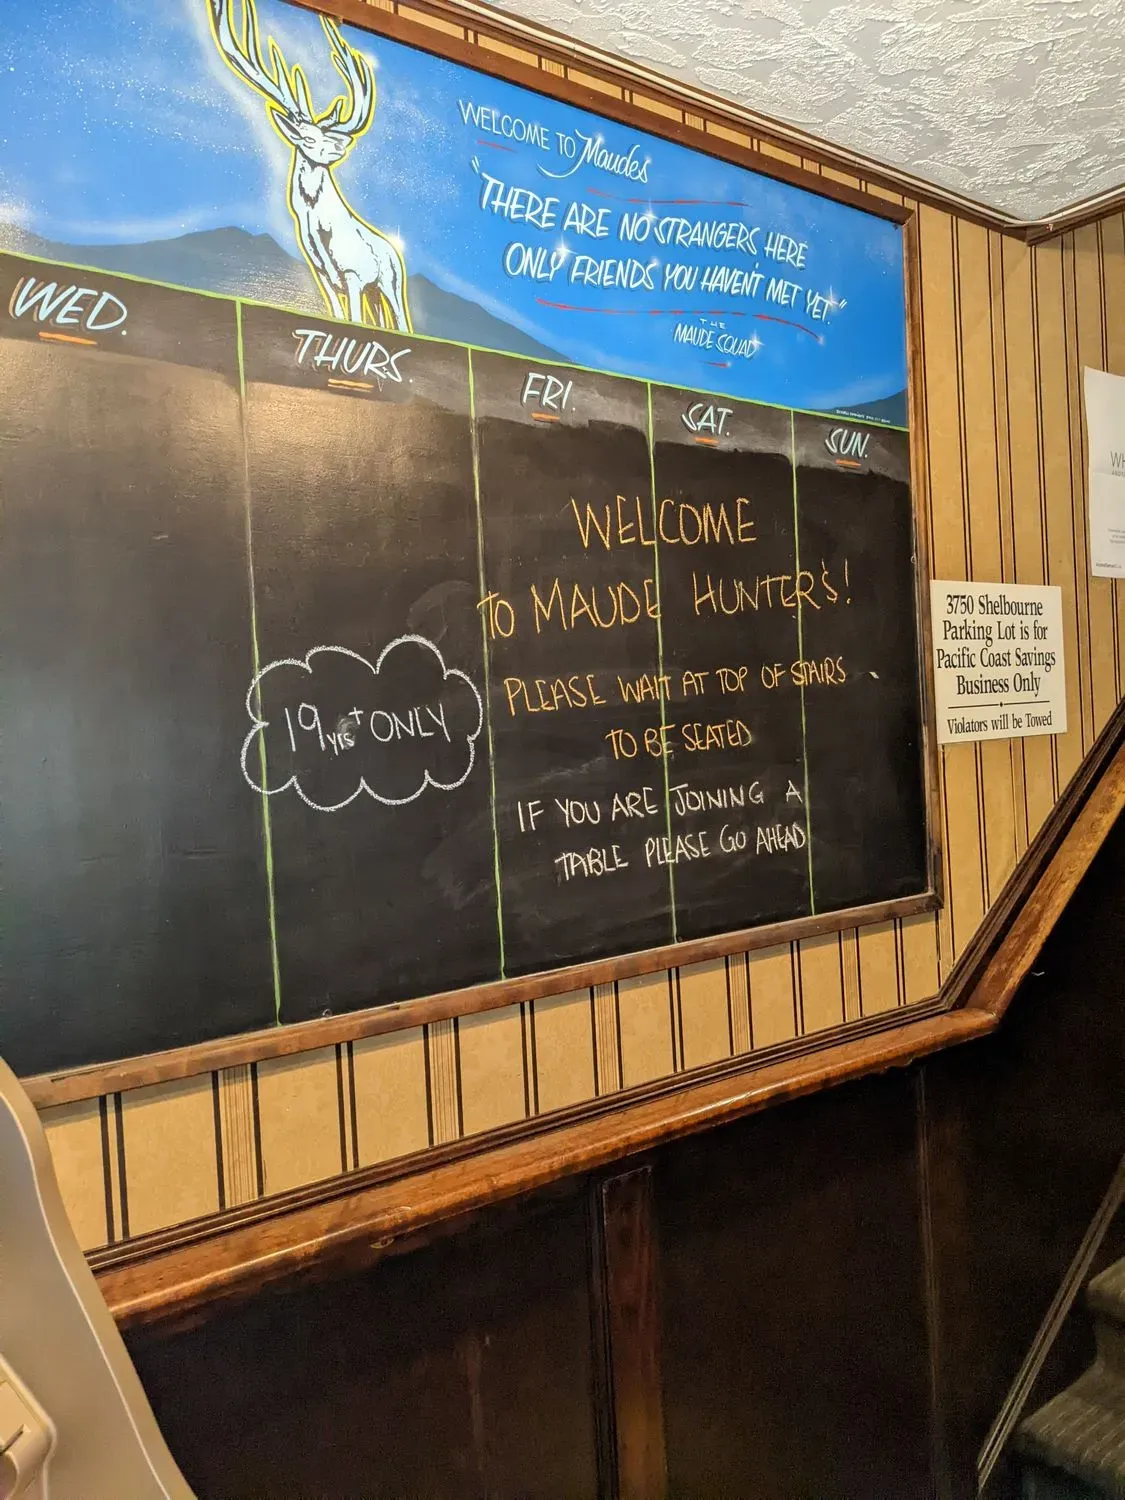 WELCOME TO Maudes
"THERE ARE NO STRANGERS HERE
ONLY FRIENDS YOU HAVEN'T MET YET."
THE
MAUDE SQUAD
WED.
THURS.
FRI.
SAT.
SUN.
WELCOME
TO MAUDE HUNTER'S!
PLEASE WAIT AT TOP OF STAIRS
TO BE SEATED
IF YOU ARE JOINING A
TABLE PLEASE GO AHEAD
19yrs+ ONLY
3750 Shelbourne
Parking Lot is for
Pacific Coast Savings
Business Only
Violators will be Towed
WH